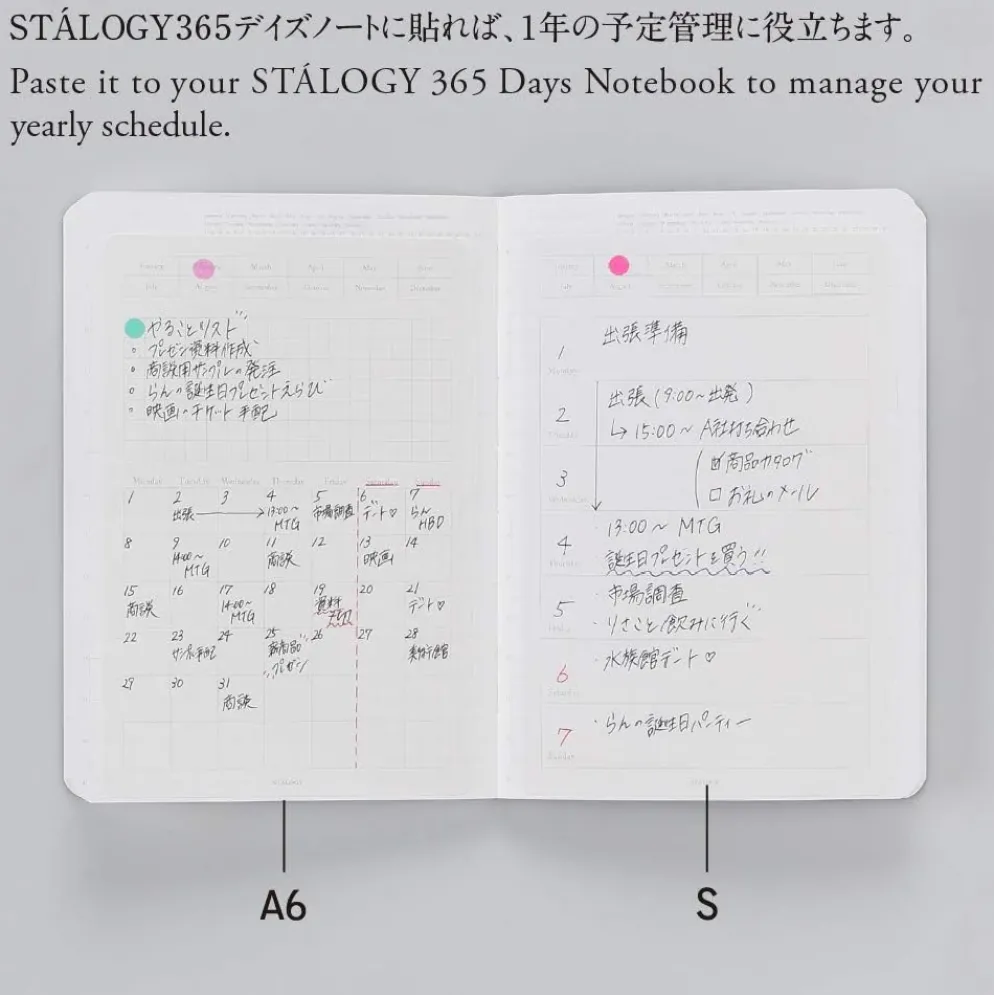 STÁLOGY365デイズノートに貼れば、1年の予定管理に役立ちます。
Paste it to your STÁLOGY 365 Days Notebook to manage your
yearly schedule.
March April May June
July August September October November December
やることリスト
プレゼン資料作成
商談用サンプルの発注
らんの誕生日プレゼントえらび
映画のチケット手配
Monday Tuesday Wednesday Thursday Friday Saturday Sunday
1 2 3 4 5 6 7
出張 13:00~ MTG 市場調査 デート♡ らん HBD
8 9 10 11 12 13 14
14:00~ MTG 商談 映画
15 16 17 18 19 20 21
商談 14:00~ MTG 資料 デート♡
22 23 24 25 26 27 28
新商品 プレゼン
29 30 31
商談
March
August
1 出張準備
Monday
2 出張(9:00~出発)
↳ 15:00~ A社打ち合わせ
3 ☑ 商品カタログ
Wednesday □ お礼のメール
4 ・13:00~ MTG
Thursday 誕生日プレゼントを買う!!
5 ・市場調査
・りさこと飲みに行く
6 ・水族館デート♡
7 ・らんの誕生日パーティー
A6
S